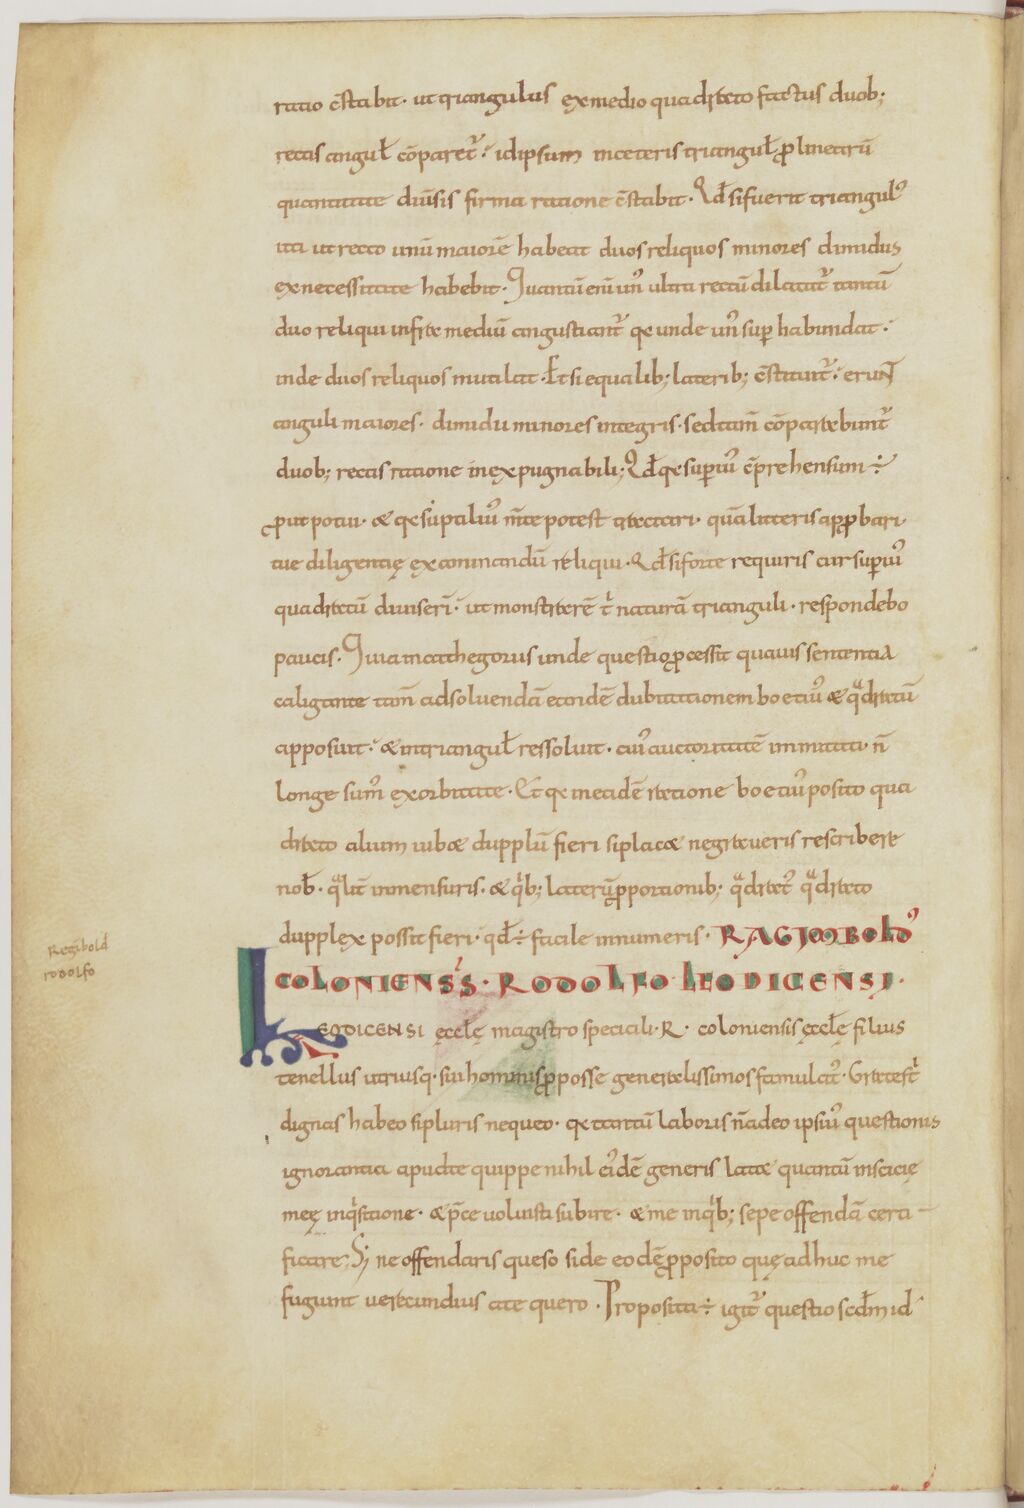 ratio c̄stabit· ut triangulus ex medio quadrato factus duob;
rectis angul̄ cōparet᷑·᷎ id ipsum in ceteris triangul̄ ꝓ linearū
quantitate diūsis firma ratione c̄stabit· Qd̄ si fuerit triangul᷒
ita ut recto unū maiorē habeat duos reliquos minores dimidiis
ex necessitate habebit· Quantū enī un᷒ ultra rectū dilatat᷑ tantū
duo reliqui infra mediū angustiant᷑ & unde un᷒ suꝑ habundat·᷎
inde duos reliquos mutilat· Et si equalib; laterib; c̄stituit᷑·᷎ erunt
anguli maiores· dimidii minores integris· sed tam̄ cōparabunt᷑
duob; rectis ratione inexpugnabili; Qd̄ & superi᷒ c̄prehensum ÷
ꝓut potui· & & suptiliu᷒ m̄te potest tractari· quā litteris apꝓbari·
tue diligentię examinandū reliqui· Qd̄ si forte requiris cur superi᷒
quadratū diuiserī·᷎ ut monstrarē t' naturā trianguli· respondebo
paucis· Quia in cathegoriis unde questio ꝓcessit quauis sententia
caligante tam̄ ad soluendā eandē dubitationem boetiu᷒ & qͣdratū
apposuit·᷎ & in triangul̄ ressoluit· cui᷒ auctoritatē imitati n̄
longe sum᷒ exorbitate· Et & in eadē ratione boetiu᷒ posito qua
drato alium iubæ dupplū fieri si placæ negraueris rescribere
nob̄· qͣlit̄ in mensuris· & qͥb; laterū ꝓportionib; qͣdrat᷒ qͣdrato
dupplex possit fieri· qd̄ ÷ facile in numeris· RAGIMBOLD᷒
COLONIENSIS· RODOLFO LEODICENSI·
LEODICENSI ęccl̄ę magistro speciali· R· coloniensis ęccl̄ę filius
tenellus utriusq· sui hominis ꝓ posse generalissimos famulat᷒· Grates t'
dignas habeo si pluris nequeo· & tantū laboris n̄ adeo ipsiu᷒ questionis
ignorantia apud te quippe nihil ei᷒dē generis latæ quantū insciciæ
meę inqͥsitione· & p̄ce uoluisti subire· & me inqͥb; sepe offendā certi
ficare; Si ne offendaris queso side eodē ꝓposito quę adhuc me
fugiunt uerecundius a te quero· Proposita ÷ igit᷑ questio scd̄m id
Regibold
rodolfo